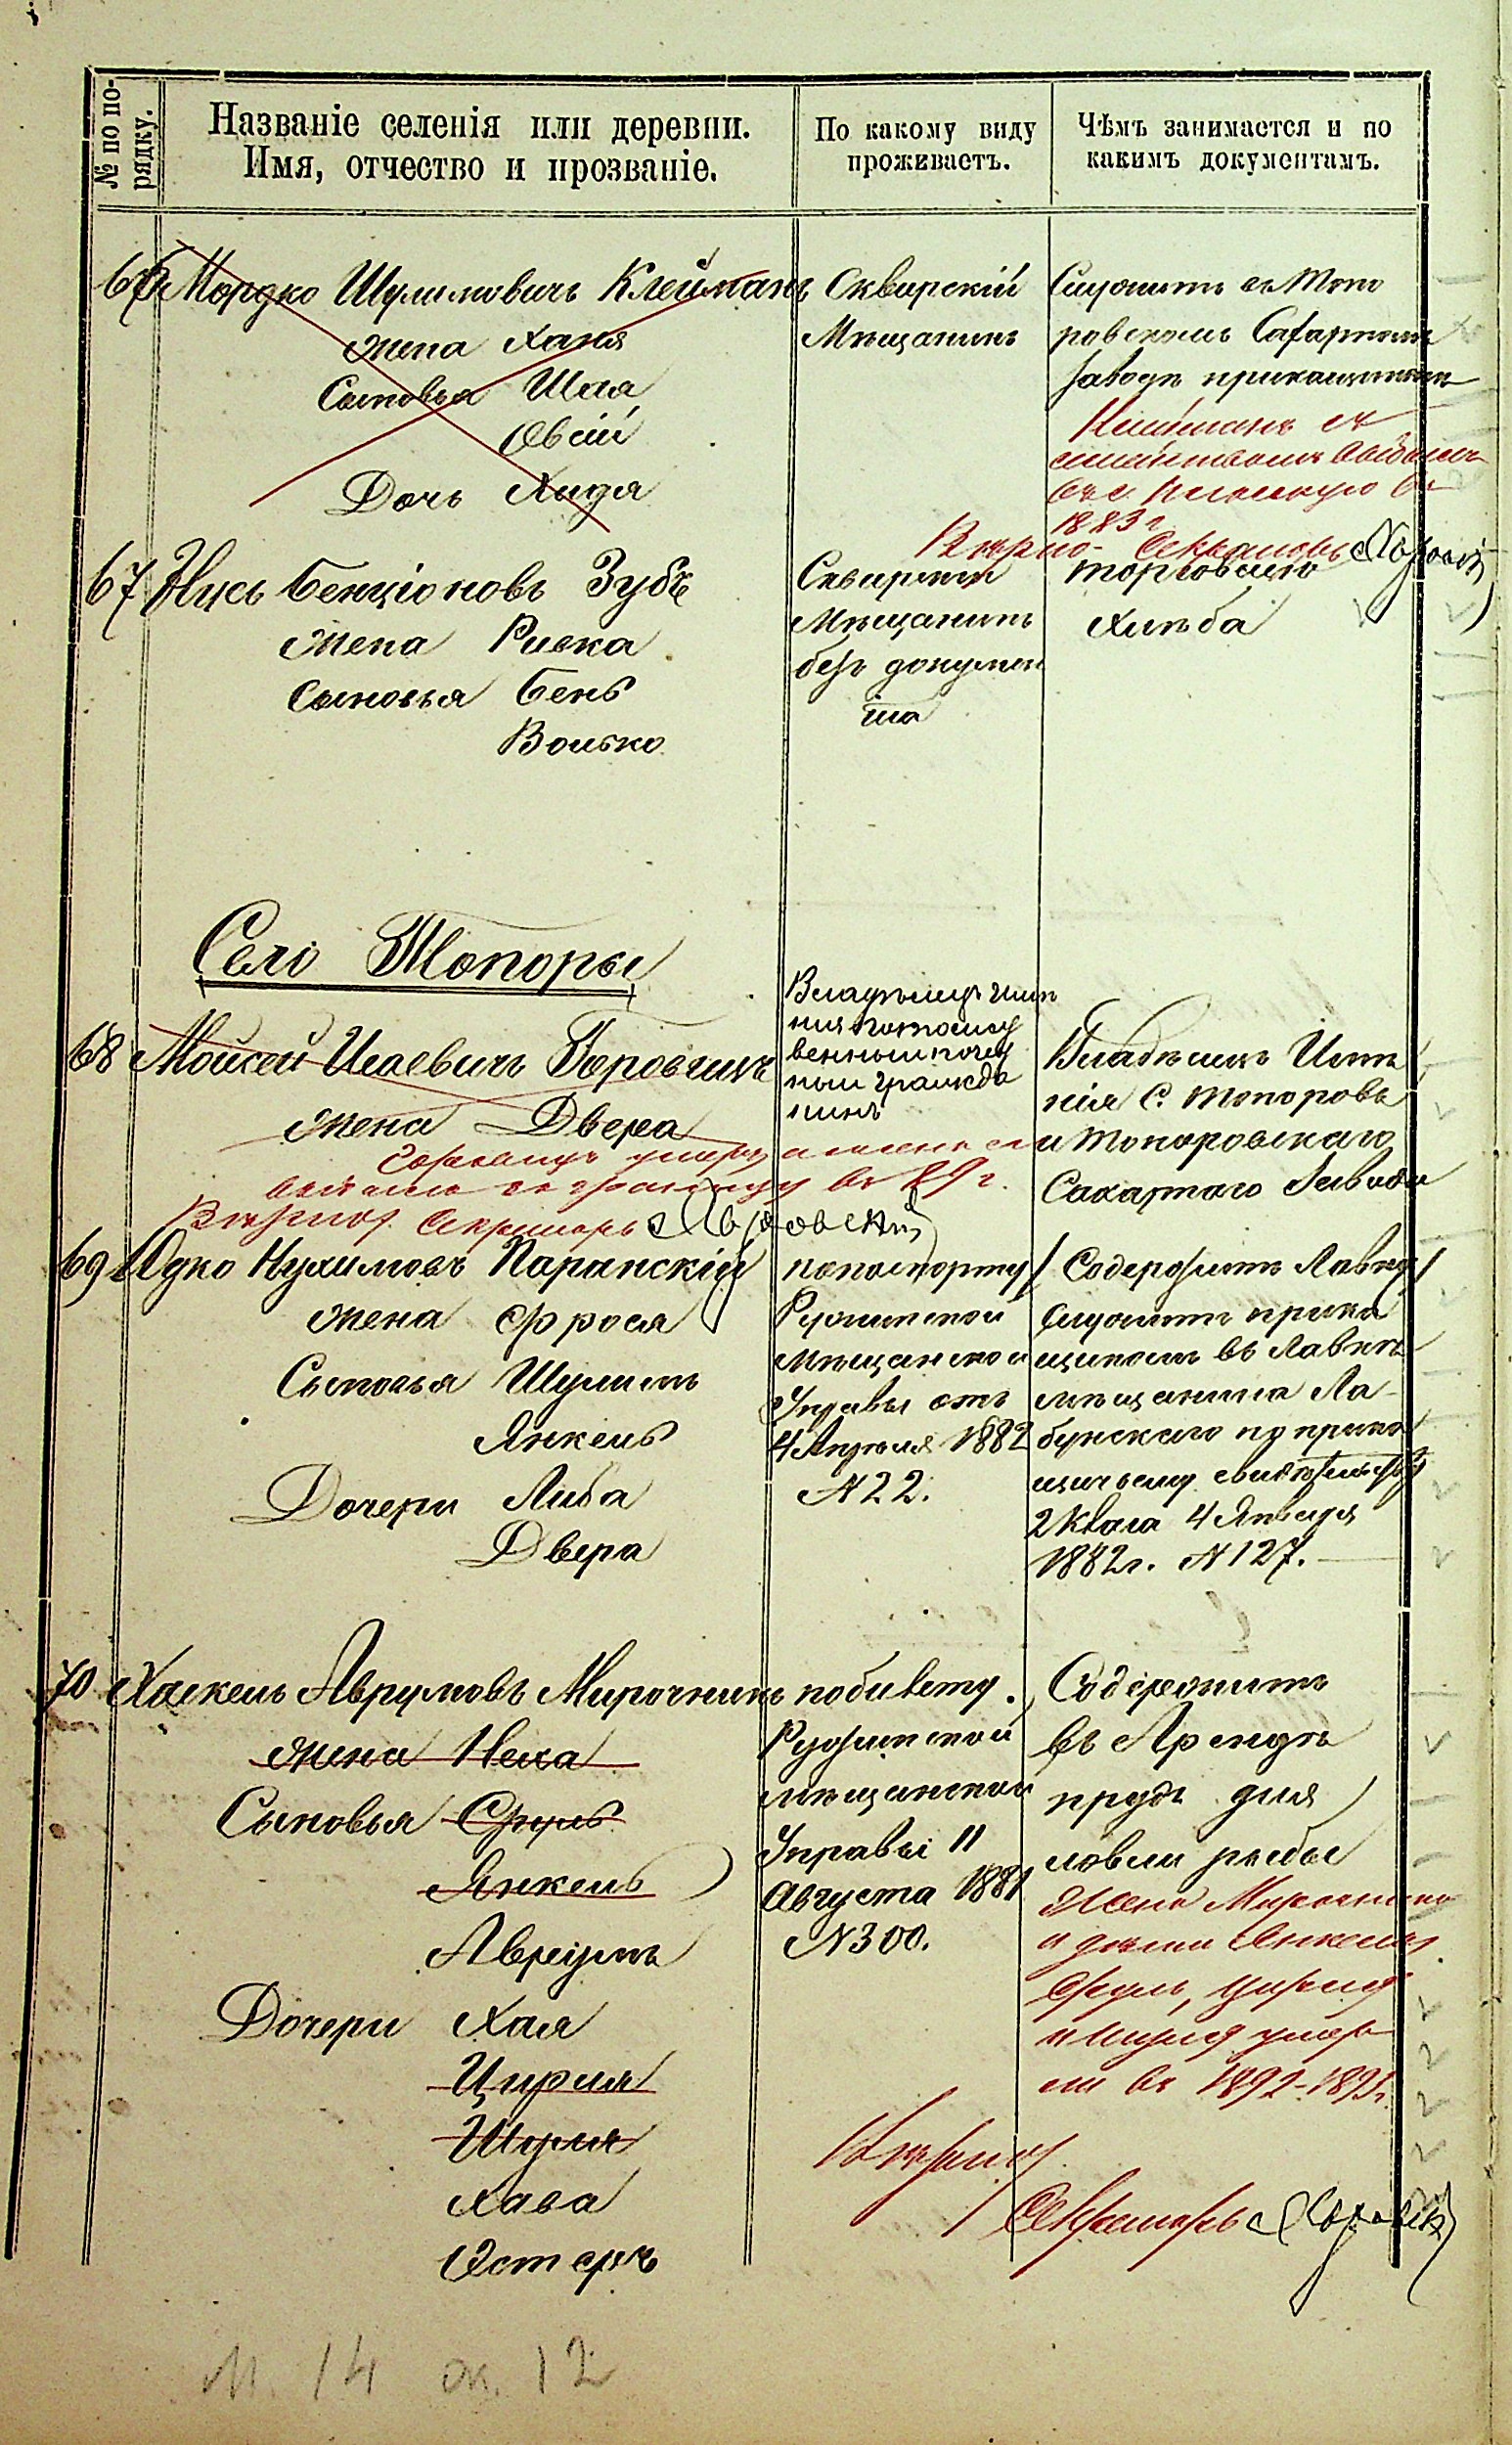 № по по-
рядку.
Названіе селенія или деревни.
Имя, отчество и прозваніе.
По какому виду
проживаетъ.
Чѣмъ занимается и по
какимъ документамъ.
Мордко Шулимовичъ Клейманъ
жена Ханя
Сыновья Шая
Овсій
Дочь Хидя
Сквирскій
Мѣщанинъ
Служитъ въ Топо
ровскомъ Сахарномъ
Заводѣ прикащикомъ
Клейманъ съ
семействомъ
въ с.
1883 г
Вѣрно Секретарь
67 Нусь Бенціоновъ Зубъ
жена Ривка
Сыновья Бень
Волько
Сквирскій
Мѣщанинъ
безъ докумен
та
торговлею
хлѣба
Село Топоры
68 Мойсей Исаевичъ Горовицъ
жена Двера
Владѣлецъ имѣ
нія потомст
венный почет
ный гражда
нинъ
Владѣлецъ Имѣ
нія с. Топоровъ
и Топоровскаго
Сахарнаго Завода
умеръ а жена
за границу въ 89 г.
Вѣрно: Секретарь
69 Юдко Нухимовъ Паранскій
жена Фрося
Сыновья Шулимъ
Янкель
Дочери Либа
Двера
по паспорту
Ружинской
мѣщанской
Управы отъ
4 Апрѣля 1882
№ 22.
Содержитъ Лавку
Служитъ прика
щикомъ въ Лавкѣ
мѣщанина Ла-
бунскаго по прика
щичьему свидѣтельству
2 класа 4 Января
1882 г. № 127.
70 Хаскель Аврумовъ Мирочникъ
жена Неха
Сыновья Сруль
Янкель
Аврумъ
Дочери Хая
Цирля
Шурля
Хава
Эстеръ
по билету
Ружинской
мѣщанской
Управы 11
Августа 1881
№ 300.
Содержитъ
въ Арендѣ
прудъ для
ловли рыбы
Жена Мирочника
и дѣти Янкель
Сруль, Цирля
и Шурля умер
ли въ 1892-1893 г.
Вѣрно:
Секретарь
м. 14 ж. 12